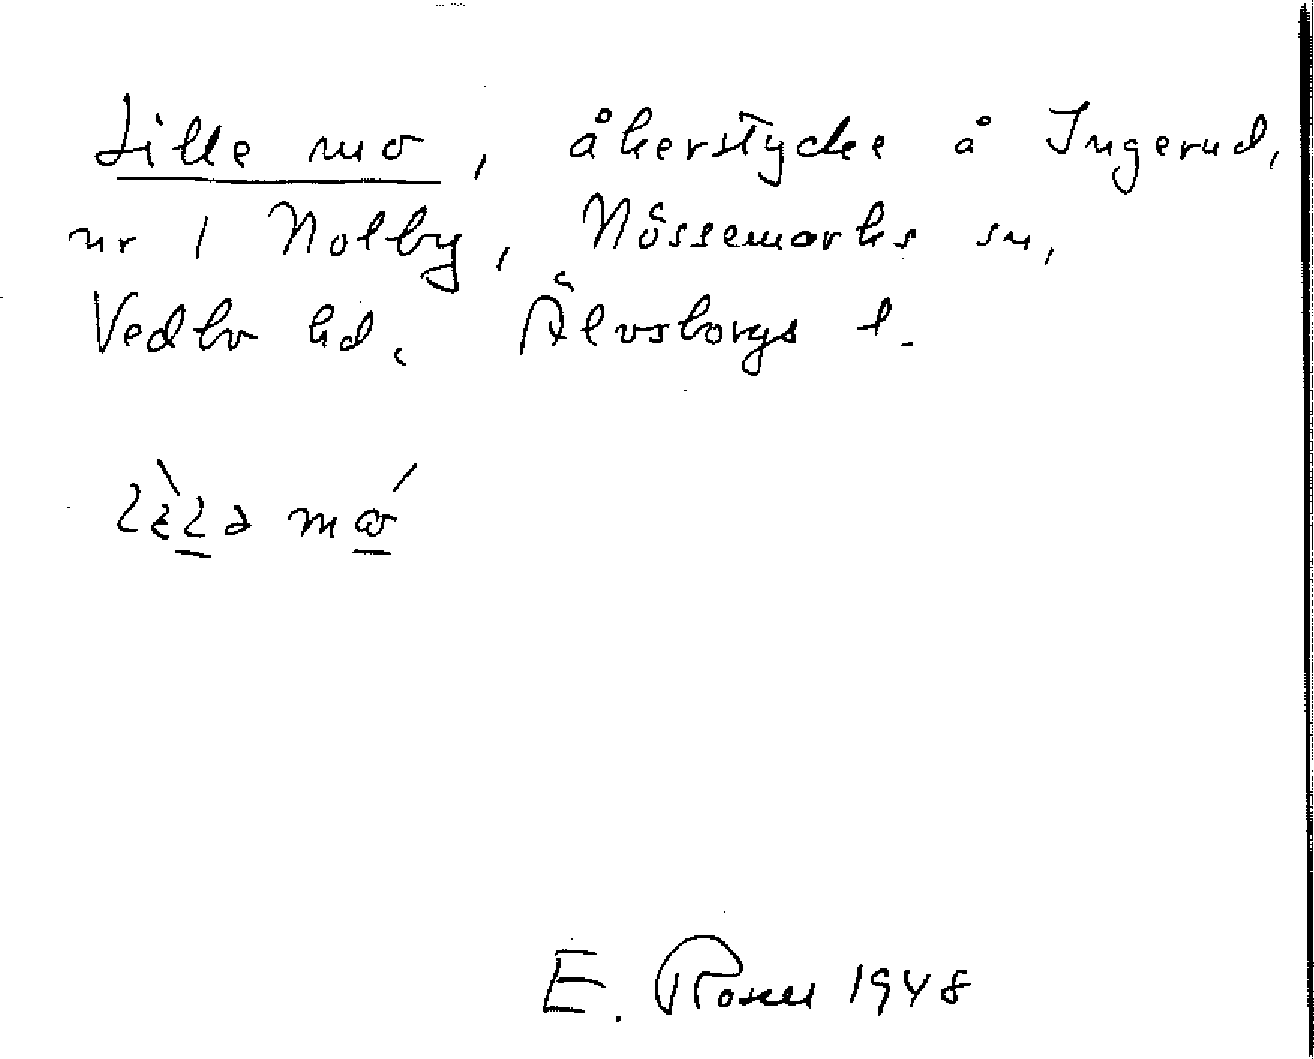 Lille mo, åkerstycke å Ingerud,
nr 1 Nolby, Nössemarks sn,
Vedbo hd. Älvsborgs l.
E. Rosell 1948